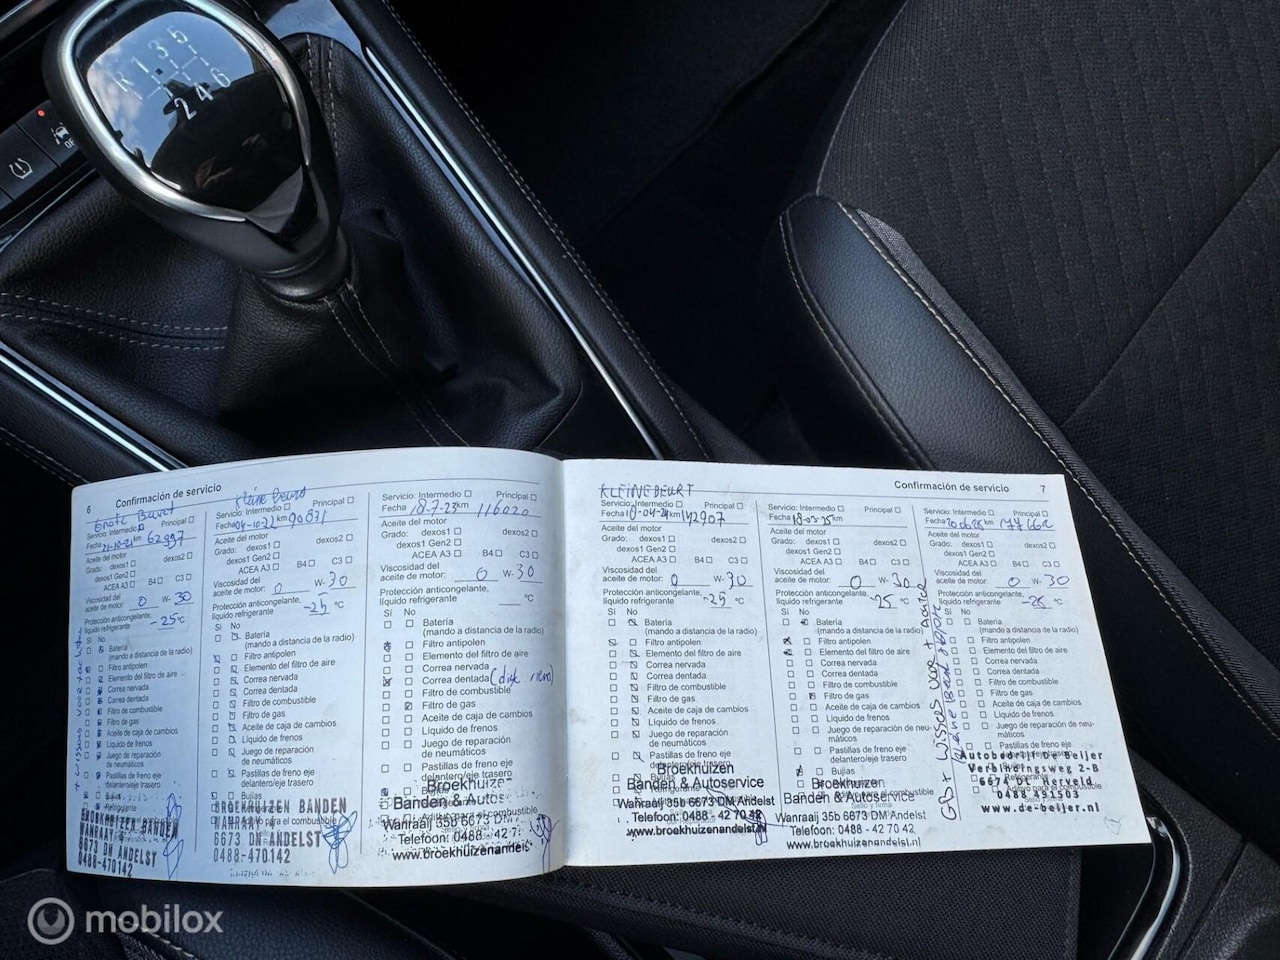 R 1 3 5
2 4 6
OFF
6
Confirmación de servicio
Grote Beurt
Servicio: Intermedio Principal
Fecha 21-10-21 km 62997
Aceite del motor
Grado: dexos1 dexos2
dexos1 Gen2
ACEA A3 B4 C3
Viscosidad del
aceite de motor: 0 W- 30
Protección anticongelante,
líquido refrigerante -25 °C
Si No
Batería
(mando a distancia de la radio)
Filtro antipolen
Elemento del filtro de aire
Correa nervada
Correa dentada
Filtro de combustible
Filtro de gas
Aceite de caja de cambios
Líquido de frenos
Juego de reparación
de neumáticos
Pastillas de freno eje
delantero/eje trasero
Bujías
Refrigerante
BROEKHUIZEN BANDEN
WANRAAY
6673 DN ANDELST
0488-470142
Kleine Beurt
Servicio: Intermedio Principal
Fecha 04-10-22 km 90831
Aceite del motor
Grado: dexos1 dexos2
dexos1 Gen2
ACEA A3 B4 C3
Viscosidad del
aceite de motor: 0 W- 30
Protección anticongelante,
líquido refrigerante -25 °C
Si No
Batería
(mando a distancia de la radio)
Filtro antipolen
Elemento del filtro de aire
Correa nervada
Correa dentada
Filtro de combustible
Filtro de gas
Aceite de caja de cambios
Líquido de frenos
Juego de reparación
de neumáticos
Pastillas de freno eje
delantero/eje trasero
Bujías
BROEKHUIZEN BANDEN
WANRAAY
6673 DN ANDELST
0488-470142
Servicio: Intermedio Principal
Fecha 18-7-23 km 116020
Aceite del motor
Grado: dexos1 dexos2
dexos1 Gen2
ACEA A3 B4 C3
Viscosidad del
aceite de motor: 0 W- 30
Protección anticongelante,
líquido refrigerante °C
Si No
Batería
(mando a distancia de la radio)
Filtro antipolen
Elemento del filtro de aire
Correa nervada
Correa dentada
Filtro de combustible
Filtro de gas
Aceite de caja de cambios
Líquido de frenos
Juego de reparación
de neumáticos
Pastillas de freno eje
delantero/eje trasero
Broekhuizen
Banden & Autos
Wanraaij 35b 6673 DM
Telefoon: 0488 - 42 7
www.broekhuizenandelst
Confirmación de servicio
7
KLEINE BEURT
Servicio: Intermedio Principal
Fecha 18-04-24 km 142907
Aceite del motor
Grado: dexos1 dexos2
dexos1 Gen2
ACEA A3 B4 C3
Viscosidad del
aceite de motor: 0 W- 30
Protección anticongelante,
líquido refrigerante -25 °C
Si No
Batería
(mando a distancia de la radio)
Filtro antipolen
Elemento del filtro de aire
Correa nervada
Correa dentada
Filtro de combustible
Filtro de gas
Aceite de caja de cambios
Líquido de frenos
Juego de reparación
de neumáticos
Pastillas de freno eje
delantero/eje trasero
Broekhuizen
Banden & Autoservice
Wanraaij 35b 6673 DM Andelst
Telefoon: 0488 - 42 70 42
www.broekhuizenandelst.nl
Servicio: Intermedio Principal
Fecha 18-03-25 km
Aceite del motor
Grado: dexos1 dexos2
dexos1 Gen2
ACEA A3 B4 C3
Viscosidad del
aceite de motor: 0 W- 30
Protección anticongelante,
líquido refrigerante -25 °C
Si No
Batería
(mando a distancia de la radio)
Filtro antipolen
Elemento del filtro de aire
Correa nervada
Correa dentada
Filtro de combustible
Filtro de gas
Aceite de caja de cambios
Líquido de frenos
Juego de reparación de neu-
máticos
Pastillas de freno eje
delantero/eje trasero
Bujías
Broekhuizen
Banden & Autoservice
Wanraaij 35b 6673 DM Andelst
Telefoon: 0488 - 42 70 42
www.broekhuizenandelst.nl
Servicio: Intermedio Principal
Fecha km
Aceite del motor
Grado: dexos1 dexos2
dexos1 Gen2
ACEA A3 B4 C3
Viscosidad del
aceite de motor: 0 W- 30
Protección anticongelante,
líquido refrigerante -25 °C
Si No
Batería
(mando a distancia de la radio)
Filtro antipolen
Elemento del filtro de aire
Correa nervada
Correa dentada
Filtro de combustible
Filtro de gas
Aceite de caja de cambios
Líquido de frenos
Juego de reparación de neu-
máticos
Pastillas de freno eje
Autobedrijf De Beijer
Verbindingsweg 2-B
6674 DC Herveld
0488 491503
www.de-beijer.nl
mobilox